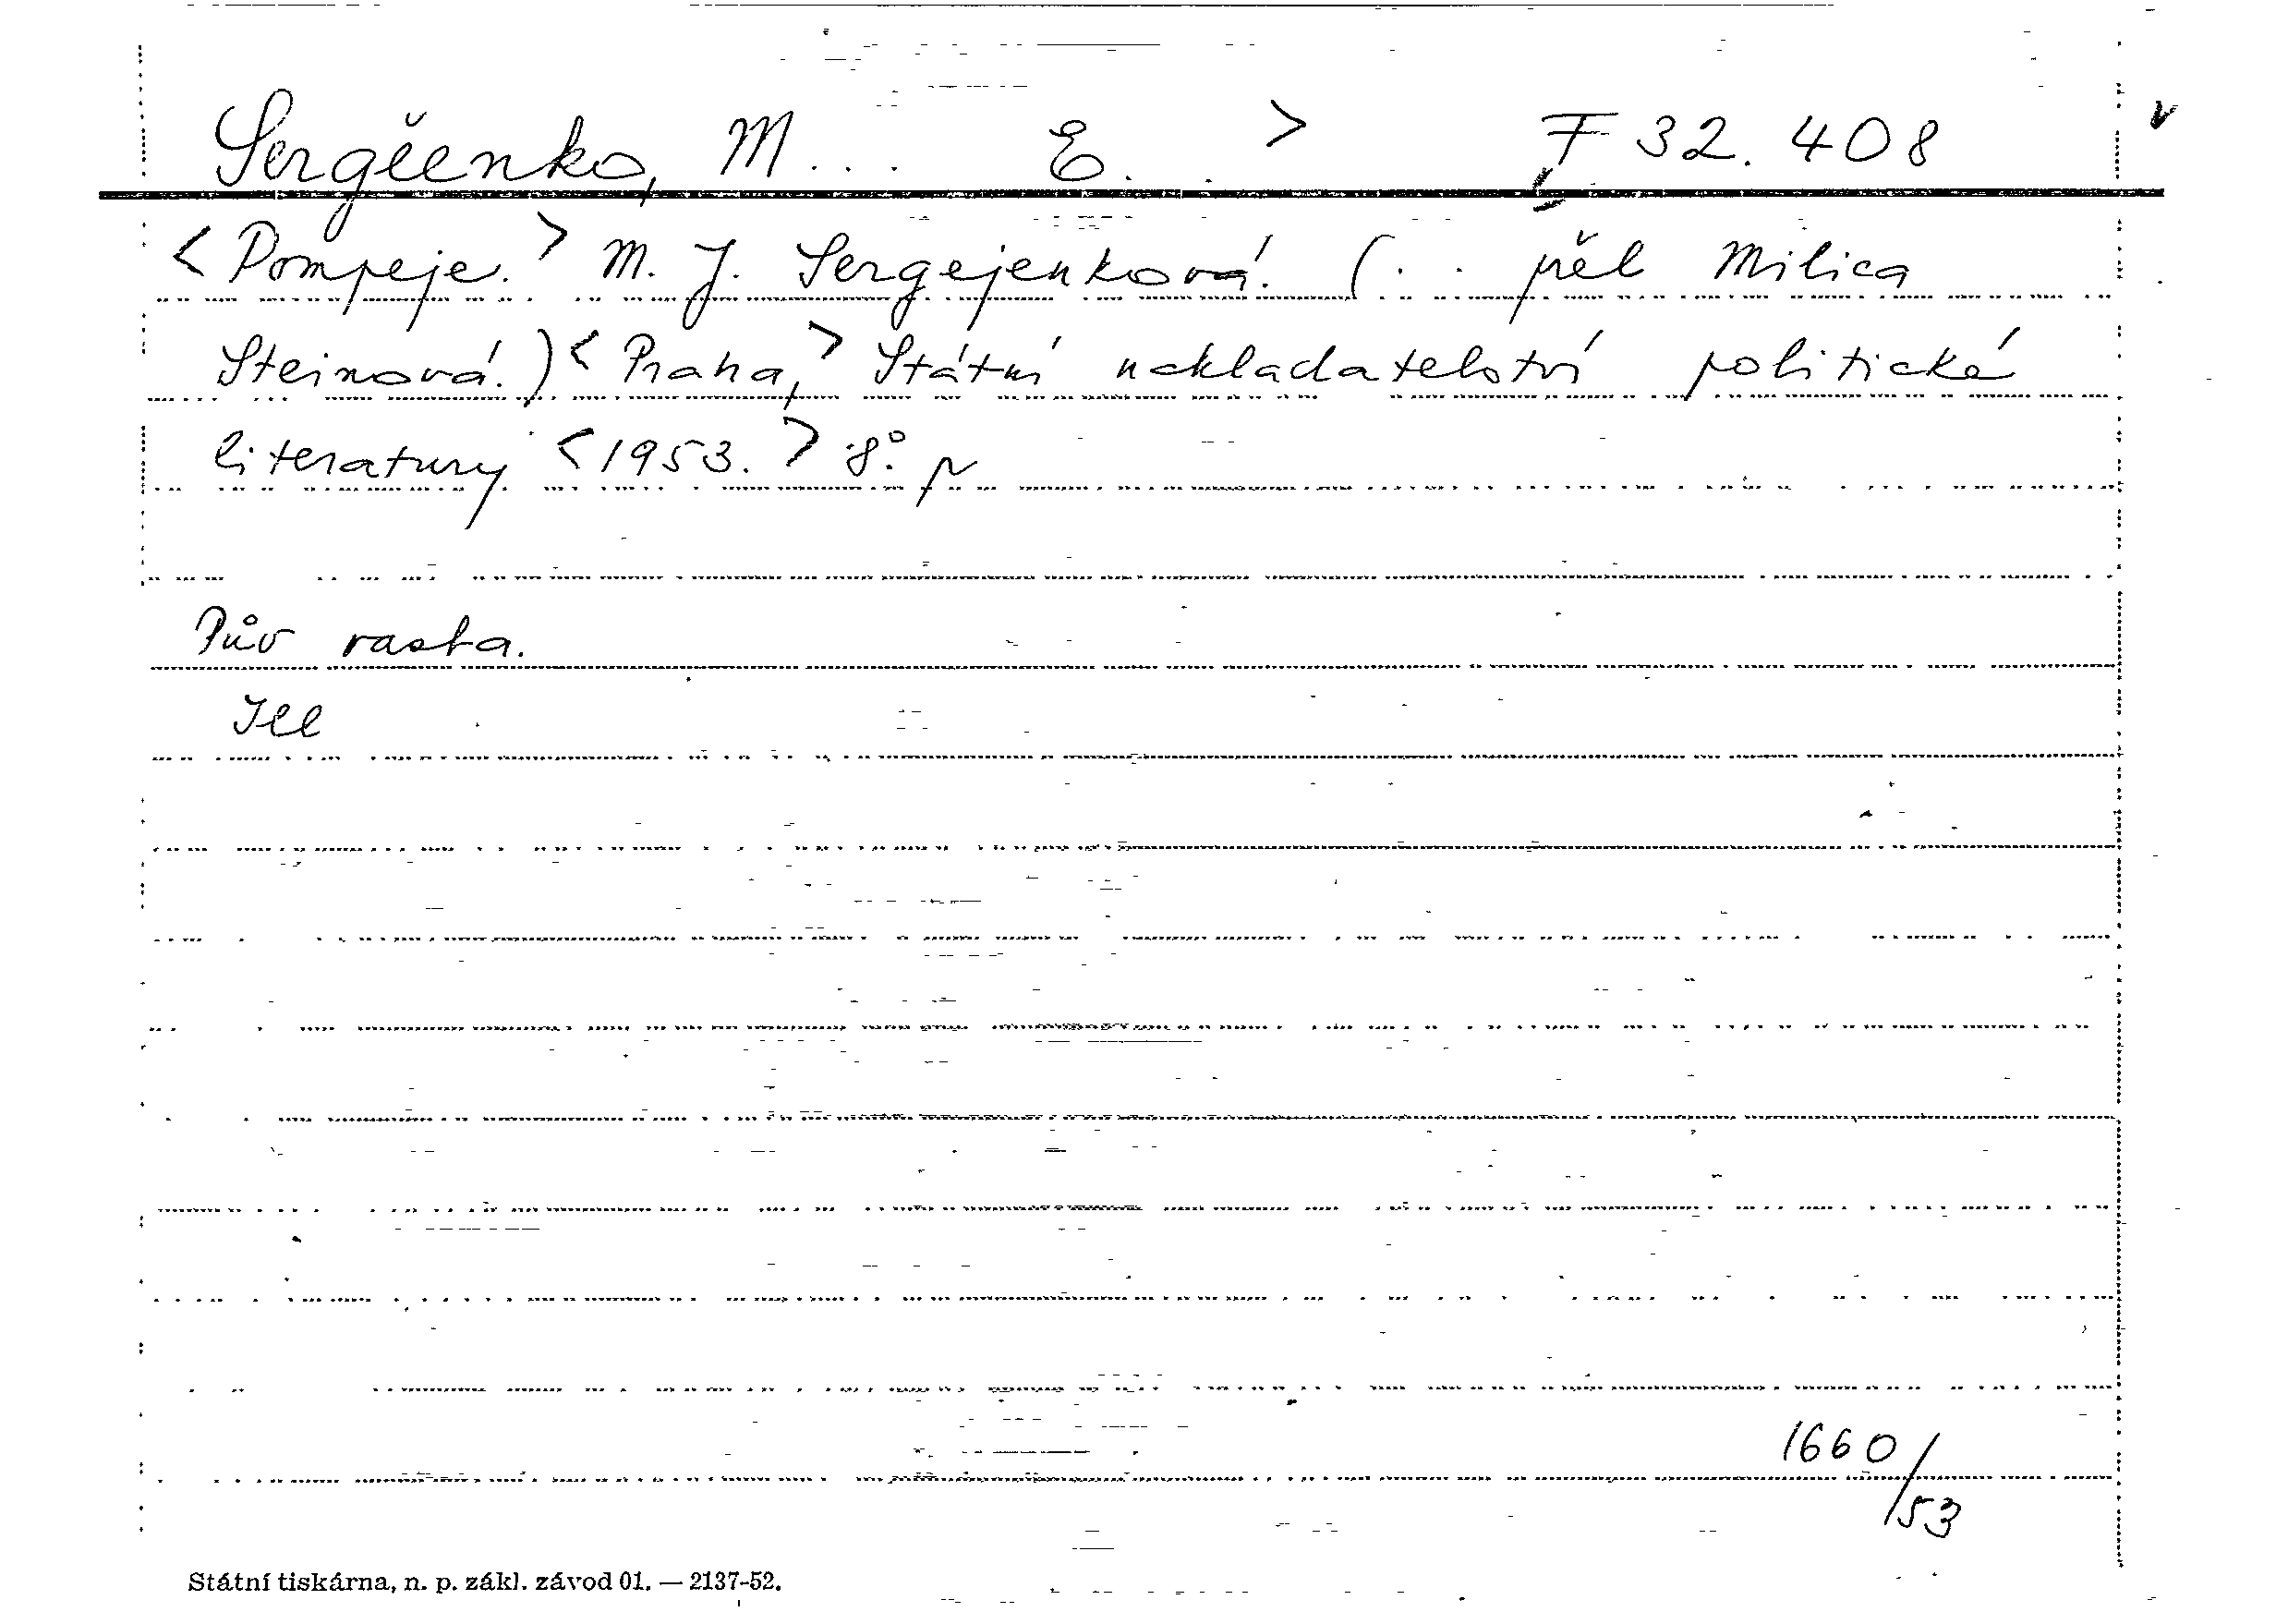 Sergěenko, M... E.. > F 32.408
<Pompeje.> M. J. Sergejenková. (.. přel Milica
Steinová.) <Praha,> Státní nakladatelství politické
literatury <1953.> 8°. p
Pův vazba.
Ill
1660/53
Státní tiskárna, n. p. zákl. závod 01. — 2137-52.